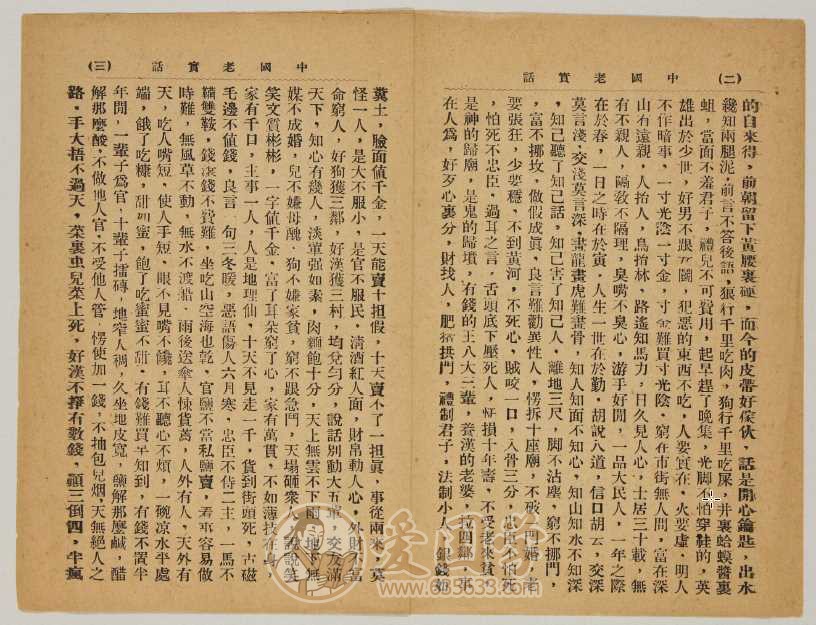 中國老實話 (二)
的自來得，前朝留下黃腰裏硬，而今的皮帶好傢伙，話是開心鑰匙，出水
纔知兩腿泥，前言不答後語，狼行千里吃肉，狗行千里吃屎，井裏蛤蟆醬裏
蛆，當面不羞君子，禮兒不可費用，起早趕了晚集，光脚不怕穿鞋的，英
雄出於少世，好男不跟女鬭，犯惡的東西不吃，人要實在，火要虛，明人
不作暗事，一寸光陰一寸金，寸金難買寸光陰，窮在市街無人問，富在深
山有遠親，人抬人，鳥抬林，路遙知馬力，日久見人心，士居三十載，無
有不親人，隔教不隔理，臭嘴不臭心，游手好閒，一品大民人，一年之際
在於春，一日之時在於寅，人生一世在於勤，胡說八道，信口胡云，交深
莫言淺，交淺莫言深，畫龍畫虎難畫骨，知人知面不知心，知山知水不知深
，知己聽了知己話，知己害了知己人，離地三尺，脚不沾塵，窮不挪門，
，富不挪坟，做假成眞，良言難勸異性人，愣拆十座廟，不破一門婚，老
要張狂，少要穩，不到黃河，不死心，賊咬一口，入骨三分，忠臣不怕死
，怕死不忠臣，過耳之言，舌頭底下壓死人，恁損十年壽，不受老來貧，
是神的歸廟，是鬼的歸墳，有錢的王八大三輩，養漢的老婆 拉四鄰，事
在人爲，好歹心裏分，財找人，肥猪拱門，禮制君子，法制小人，銀錢如
中國老實話 (三)
糞土，臉面値千金，一天能賣十担假，十天賣不了一担眞，事從兩來，莫
怪一人，是大不服小，是官不服民，淸酒紅人面，財帛動人心，外財不富
命窮人，好狗獲三鄰，好漢獲三村，均兌勻分，說話別動大五葷，交友滿
天下，知心有幾人，淡葷强如素，肉麵飽十分，天上無雲不下雨，地下無
媒不成婚，兒不嫌母醜，狗不嫌家貧，窮不跟急鬥，天塌砸衆人，說說笑
笑文質彬彬，一字値千金，富了耳朶窮了心，家有萬貫，不如薄技在身，
家有千口，主事一人，人是地理仙，十天不見走一千，貨到街頭死，古磁
毛邊不値錢，良言一句三冬暖，惡語傷人六月寒，忠臣不侍二主，一馬不
韝雙鞍，錢來錢不費難，坐吃山空海也乾，官鹽不當私鹽賣，看事容易做
時難，無風草不動，無水不渡船，雨後送傘人悚貨萬，人外有人，天外有
天，吃人嘴短，使人手短，眼不見嘴不饞，耳不聽心不煩，一碗凉水平處
端，餓了吃糠，甜如蜜，飽了吃蜜蜜不甜，有錢難買早知到，有錢不置半
年閒，一輩子爲官，十輩子擂磚，地窄人稠，久坐地皮寬，鹽鹹那麽鹹，醋
解那麽酸，不做他人官，不受他人管，愣使加一錢，不抽包兒烟，天無絕人之
路，手大捂不過天，菜裏虫兒菜上死，好漢不掙有數錢，顚三倒四，半瘋
愛国学